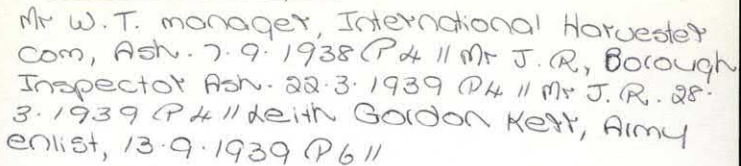 Mr W.T. manager, International Harvester
Com, Ash. 7.9.1938 P4 // Mr J.R, Borough
Inspector Ash. 22.3.1939 P4 // Mr J.R. 28.
3.1939 P4 // Keith Gordon Kerr, Army
enlist, 13.9.1939 P6 //